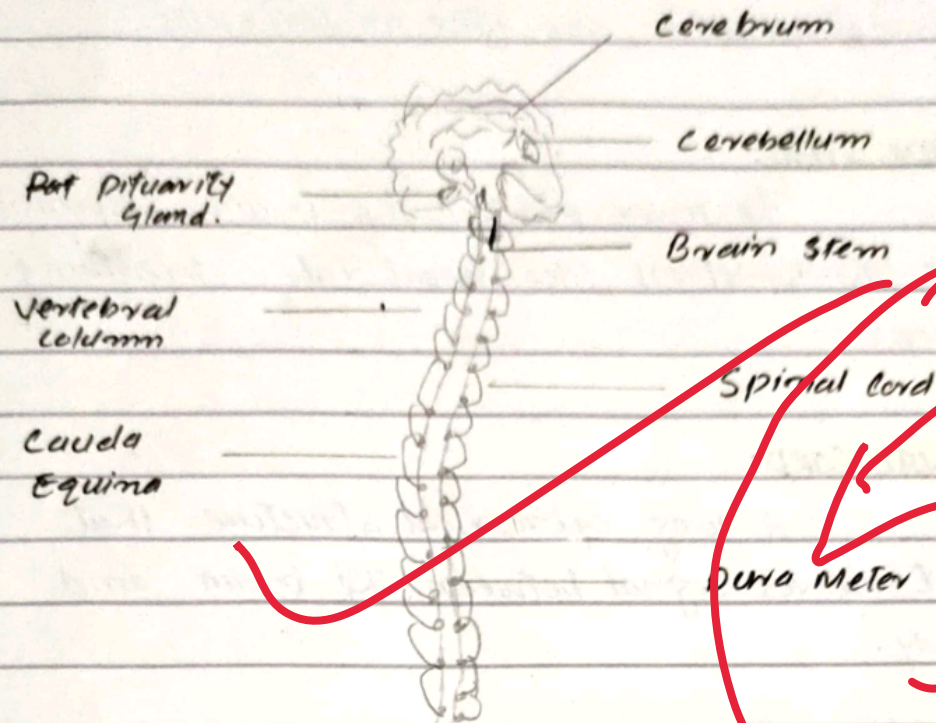 Cerebrum
Cerebellum
Pituarity
Gland.
Brain Stem
Vertebral
column
Spinal Cord
Cauda
Equina
Dura Meter